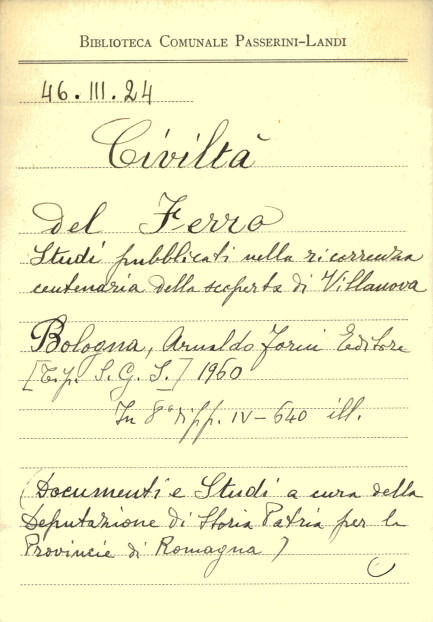 BIBLIOTECA COMUNALE PASSERINI-LANDI
46.III.24
Civiltà
del Ferro
Studi pubblicati nella ricorrenza
centenaria della scoperta di Villanova
Bologna, Arnaldo Forni Editore
[Tip. S.G.S.] 1960
In 8° pp. IV-640 ill.
(Documenti e Studi a cura della
Deputazione di Storia Patria per le
Provincie di Romagna)